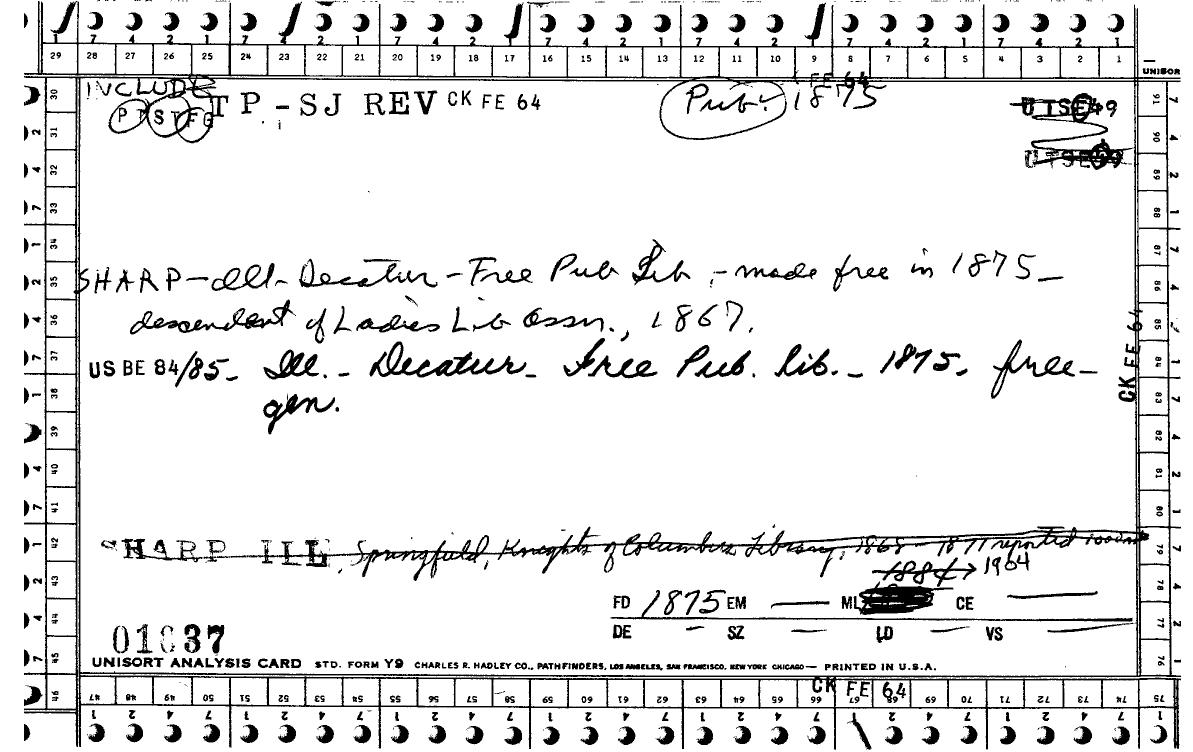 7 4 2 1 7 4 2 1 7 4 2 1 7 4 2 1 7 4 2 1 7 4 2 1 7 4 2 1
29 28 27 26 25 24 23 22 21 20 19 18 17 16 15 14 13 12 11 10 9 8 7 6 5 4 3 2 1
UNISOR
FE 64
INCLUDE
PT ST FG TP-SJ REV CK FE 64 Pub. 1875 UTSE49
UTSE
SHARP-Ill-Decatur-Free Pub Lib - made free in 1875-
descendent of Ladies Lib Assn., 1867.
US BE 84/85- Ill. - Decatur - Free Pub. Lib. - 1875- free-
gen.
CK FE 64
SHARP ILL, Springfield, Knights of Columbus Library, 1868 - 1877 reported
1884 → 1904
FD 1875 EM — ML CE —
DE - SZ — LD — VS —
01037
UNISORT ANALYSIS CARD STD. FORM Y9 CHARLES R. HADLEY CO., PATHFINDERS, LOS ANGELES, SAN FRANCISCO, NEW YORK CHICAGO — PRINTED IN U.S.A.
CK FE 64
30 31 32 33 34 35 36 37 38 39 40 41 42 43 44 45 46
47 48 49 50 51 52 53 54 55 56 57 58 59 60 61 62 63 64 65 66 67 68 69 70 71 72 73 74 75
76 77 78 79 80 81 82 83 84 85 86 87 88 89 90 91